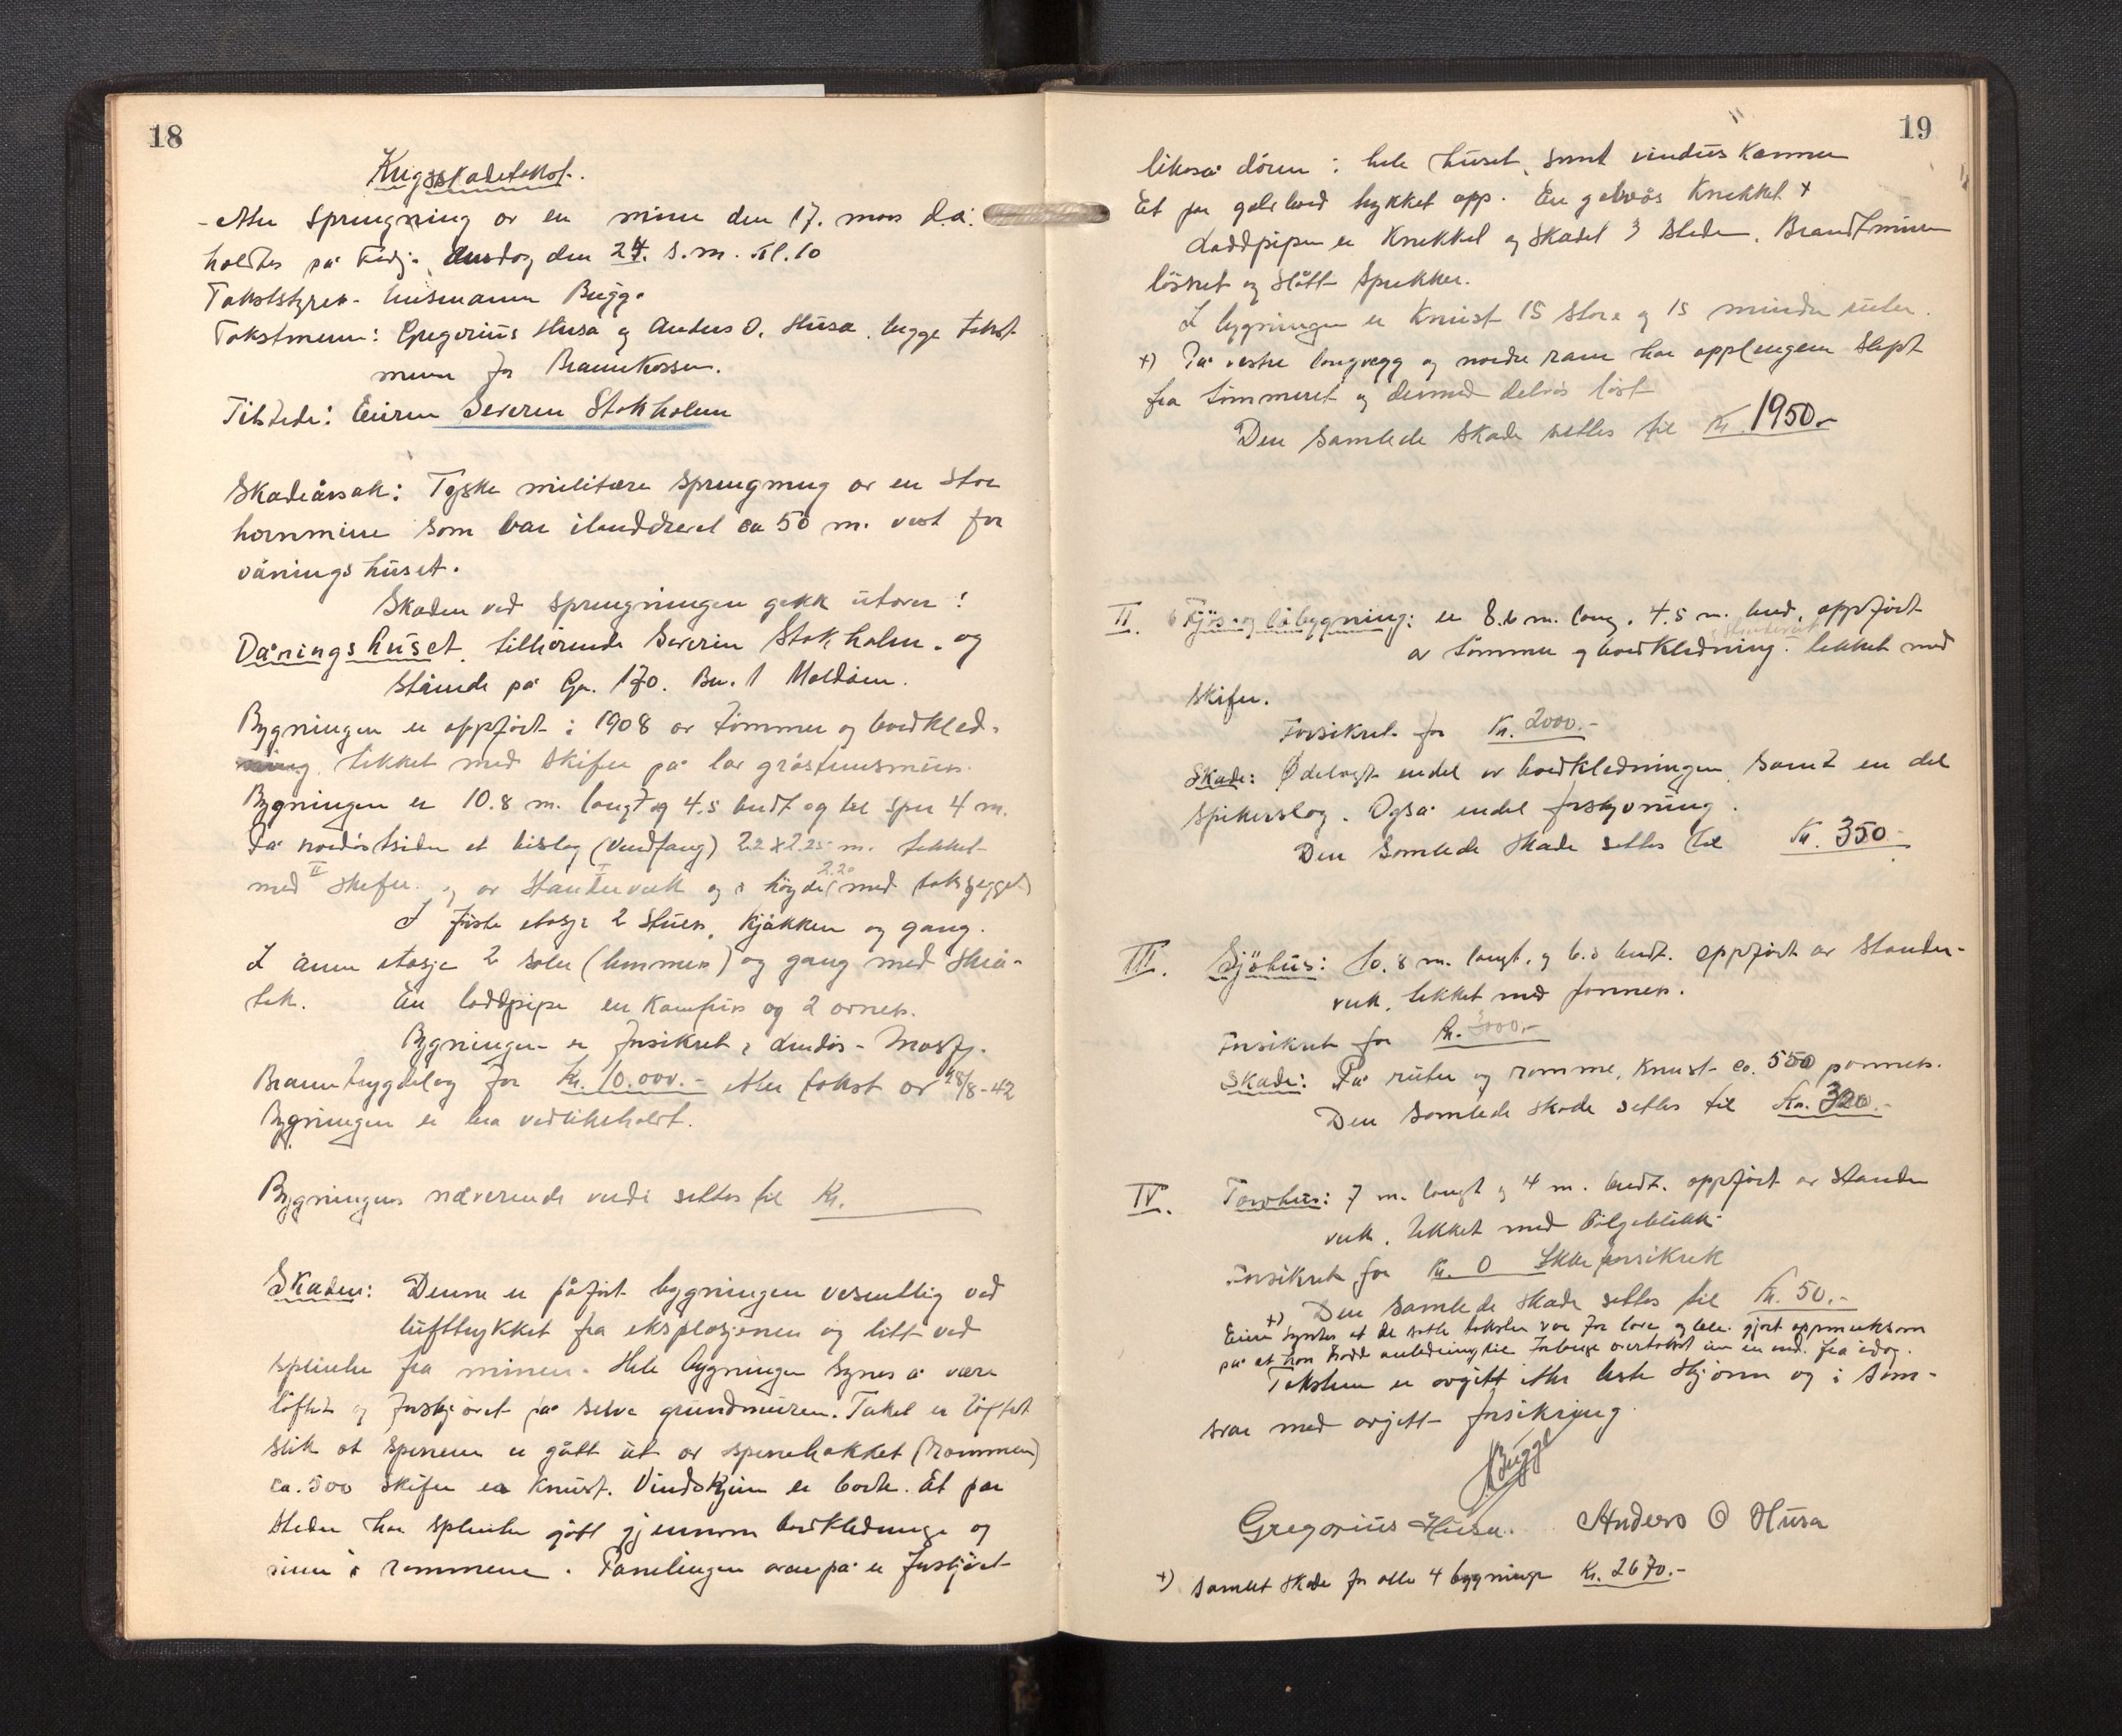 18
Krigsskadetakst.
- etter sprengning av en mine den 17. mars d.å.
holdtes på Fedje, onsdag den 24. s.m. kl. 10
Takststyrer - lensmann Bugge
Takstmenn: Gregorius Husa og Anders O. Husa, begge takst
menn for Brannkassen.
Tilstede: Eieren Severin Stokholm
Skadeårsak: Tyske militære sprengning av en stor
hornmine som var ilanddrevet ca 50 m. vest for
våningshuset.
Skaden ved sprengningen gikk utover:
Våningshuset, tilhørende Severin Stokholm, og
stående på Gn. 170. Bn. 1 Moldøen.
Bygningen er oppført i 1908 av tømmer og bordkled-
ning, tekket med skifer på lav gråstensmur.
Bygningen er 10.8 m. langt og 4.5 bredt og bel sper 4 m.
På nordøstsiden et bislag (vindfang) 2.2 x 2.25 m. tekket
med II skifer og av I standerverk og i høyde 2.20 (med takskjegget)
I første etasje 2 stuer, kjøkken og gang.
I annen etasje 2 saler (lemmer) og gang med skrå-
tak. En loddpipe en kamfun og 2 ovner.
Bygningen er forsikret i Lindås - Masfj.
Branntrygdelag for Kr. 10.000.- etter takst av 28/8-42
Bygningen er bra vedlikeholdt.
Bygningens nåværende verdi settes til Kr.
Skaden: Denne er påført bygningen vesentlig ved
lufttrykket fra eksplosjonen og litt ved
splinter fra minen. Hele bygningen synes å være
løftet og forskjøvet på selve grundmuren. Taket er løftet
slik at sperrene er gått ut av sperrehakket (rommen)
ca. 500 skifer er knust. Vindskjen er borte. Et par
steder har splinter gått gjennom bordkledninge og
inn i rommene. Panelingen ovenpå er forskjøvet
19
likeså dører i hele huset, samt vindus karmer
Et par golvbord trykket opp. En golvås knekket x
Loddpipen er knekket og skadet 3 steder. Brandtmuren
løsnet og slått sprekker.
I bygningen er knust 15 store og 15 mindre ruter.
x) På vestre langvegg og nordre ram har opplengen slept
fra tømmeret og dermed delvis løst
Den samlede skade settes til Kr. 1950.-
II. Fjøs- og løbygning: er 8.6 m. lang, 4.5 m. bred, oppført
av tømmer og standerverk bordkledning. tekket med
skifer.
Forsikret for Kr. 2000.-
Skade: Ødelagt endel av bordkledningen, samt en del
spikerslag. Også endel forskyvning.
Den samlede skade settes til Kr. 350.-
III. Sjøhus: 10.8 m. langt, og 6.5 bredt. oppført av stander-
verk, tekket med panner.
Forsikret for Kr. 3000.-
Skade: På ruter og ramme, knust ca. 550 panner.
Den samlede skade settes til Kr. 320.-
IV. Torvhus: 7 m. langt og 4 m. bredt. oppført av stander
verk, tekket med Bølgeblikk
Forsikret for Kr. 0 Ikke forsikret
x) Den samlede skade settes til Kr. 50.-
Eieren syntes at de satte takster var for lave og blev gjort oppmerksom
på at han hadde anledning til forlange overtakst inn en mnd. fra idag.
Taksten er avgitt etter beste skjønn og i sam-
svar med avgitt forsikring.
Bugge
Gregorius Husa. Anders O Husa
x) samlet skade for alle 4 bygninger Kr. 2670.-